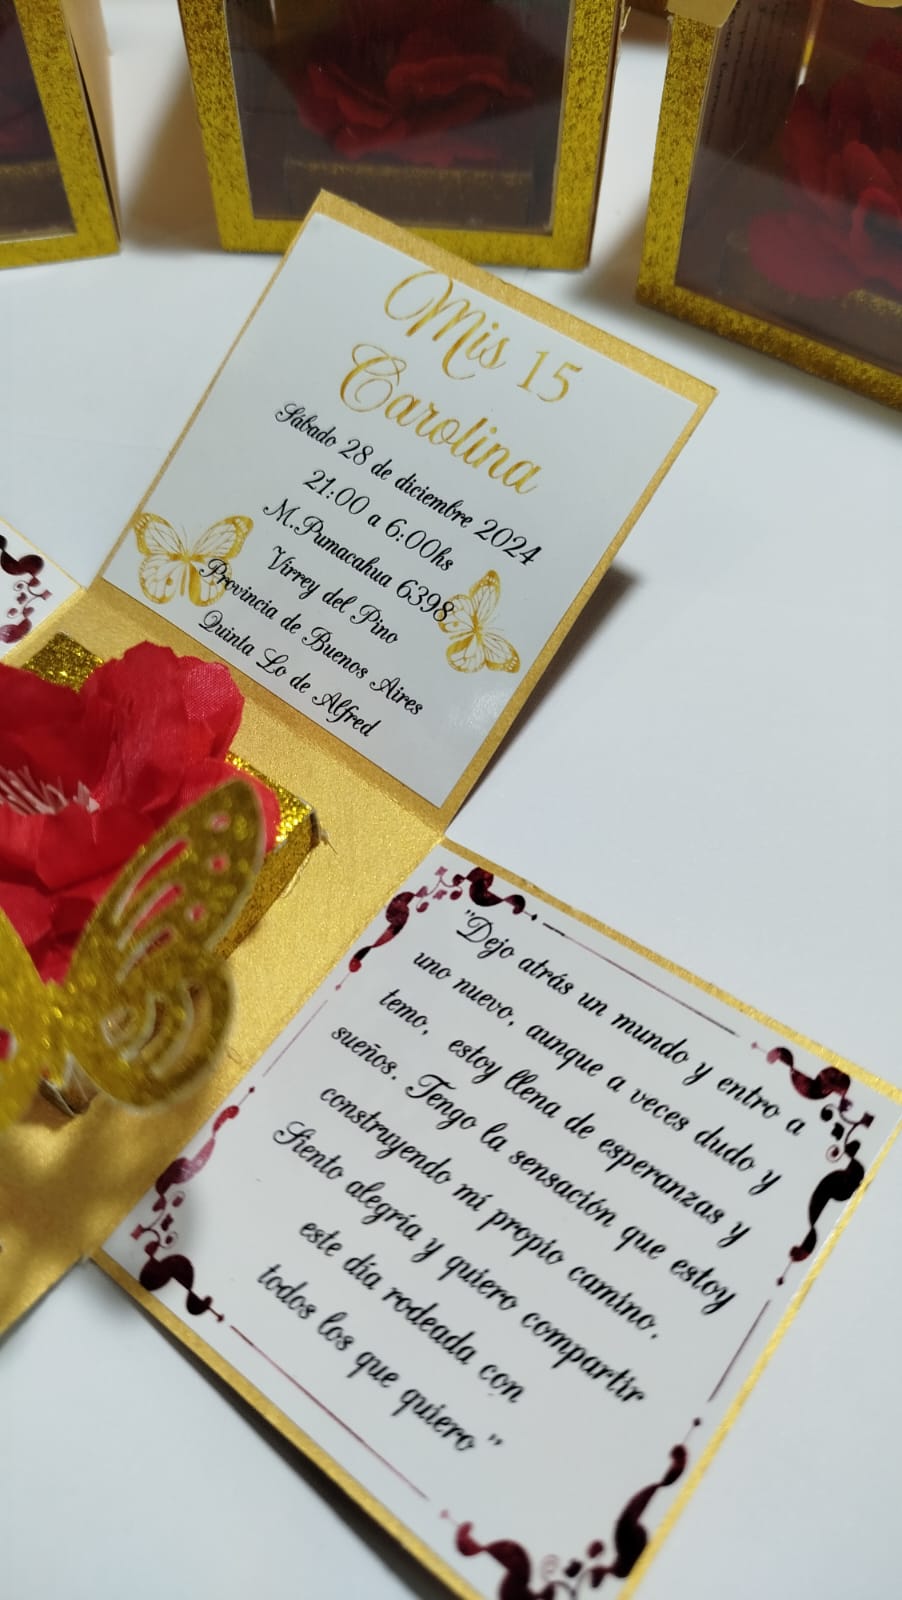 Mis 15
Carolina
Sábado 28 de diciembre 2024
21:00 a 6:00hs
M.Pumacahua 6398
Virrey del Pino
Provincia de Buenos Aires
Quinta Lo de Alfred
"Dejo atrás un mundo y entro a
uno nuevo, aunque a veces dudo y
temo, estoy llena de esperanzas y
sueños. Tengo la sensación que estoy
construyendo mi propio camino.
Siento alegría y quiero compartir
este día rodeada con
todos los que quiero "